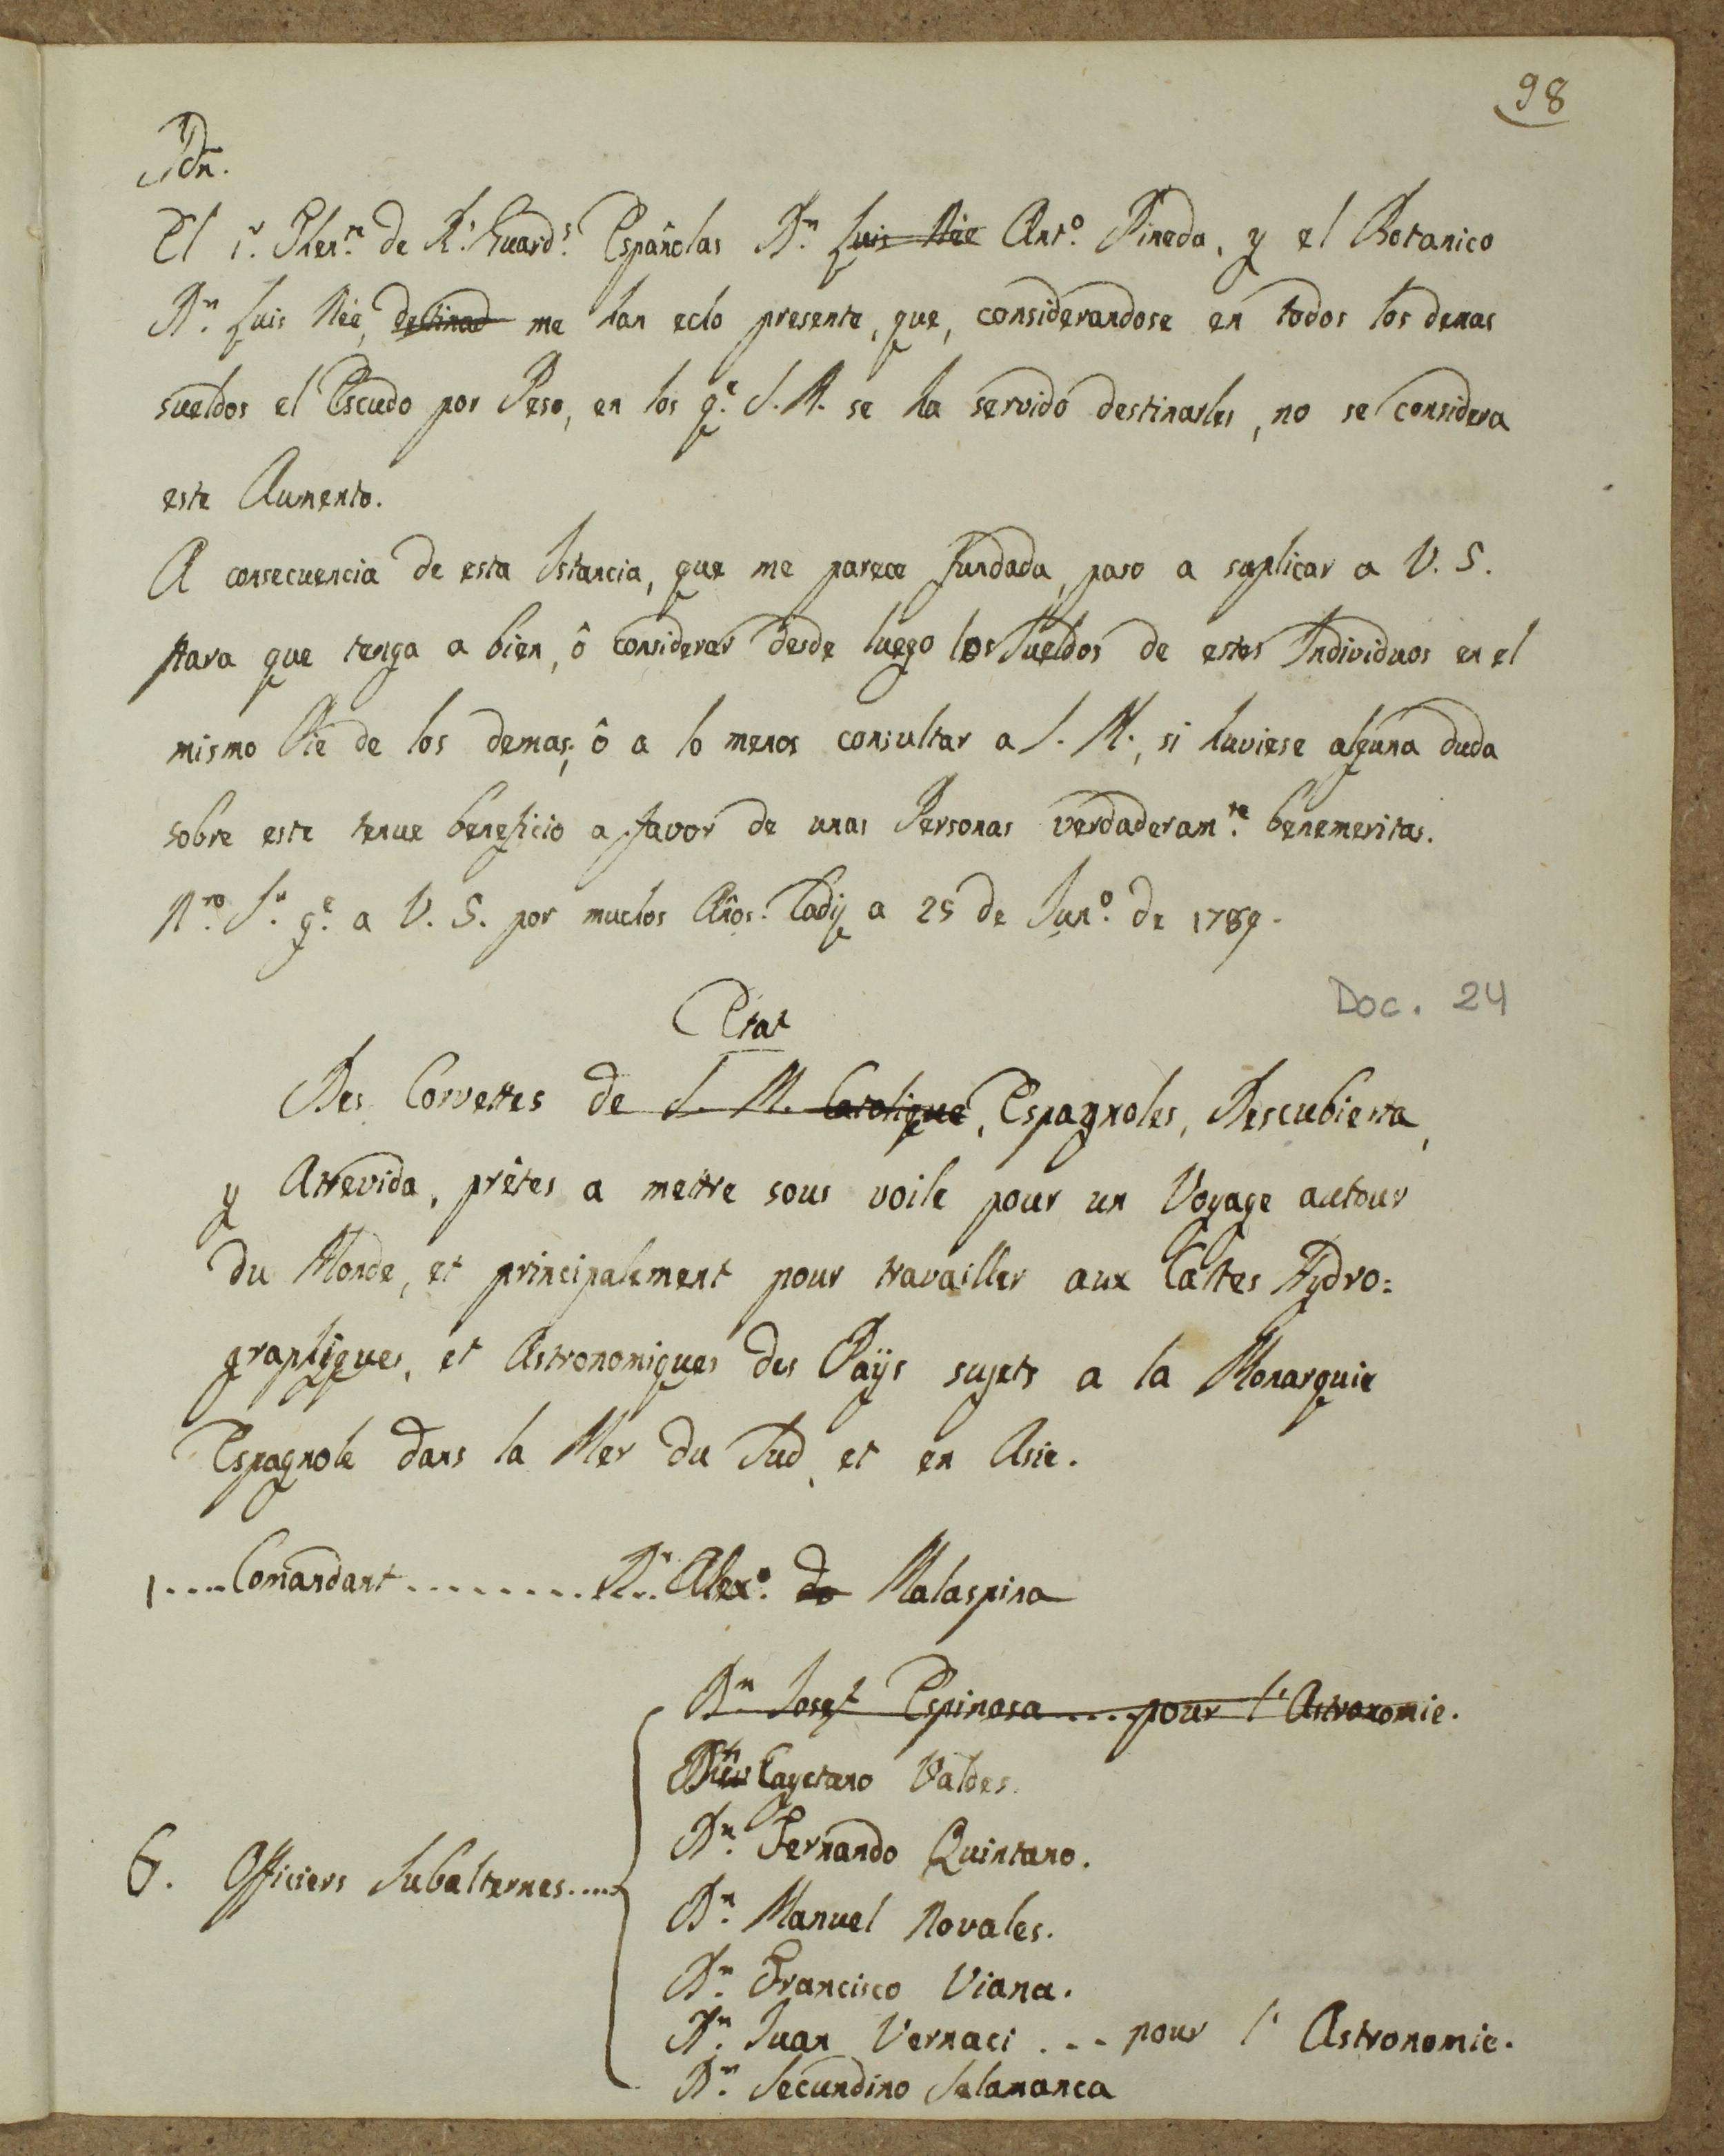 98
Idn.
El 1r. Then.te de Rs. Guards. Españolas Dn. Luis Née Anto. Pineda, y el Botanico
Dn. Luis Née, destinad me han echo presente, que, considerandose en todos los demas
sueldos el Escudo por Peso, en los qe. S. M. se ha servido destinarles, no se considera
este Aumento.
A consecuencia de esta Istancia, que me parece fundada, paso a suplicar a V. S.
para que tenga a bien, ô considerar desde luego los Sueldos de estos Individuos en el
mismo Pie de los demas; ô a lo menos consultar a S. M., si huviese alguna duda
sobre este tenue beneficio a favor de unas Personas verdaderamte. benemeritas.
Nro. Sr. ge. a V. S. por muchos Años. Cadiz a 25 de Juno. de 1789.
Doc. 24
Etat
Des Corvettes de S. M. Catolique, Espagnoles, Descubierta,
y Atrevida, prêtes a mettre sous voile pour un Voyage autour
du Monde, et principalement pour travailler aux Cartes Hydro=
graphiques, et Astronomiques des Païs sujets a la Monarquie
Espagnole dans la Mer du Sud, et en Asie.
1....Comandant.........Dn. Alexo. de Malaspina
Dn. Josef Espinosa....pour l'Astronomie.
Dn. Cayetano Valdes.
Dn. Fernando Quintano.
6. Officiers Subalternes....
Dn. Manuel Novales.
Dn. Francisco Viana.
Dn. Juan Vernaci ... pour l'Astronomie.
Dn. Secundino Salamanca